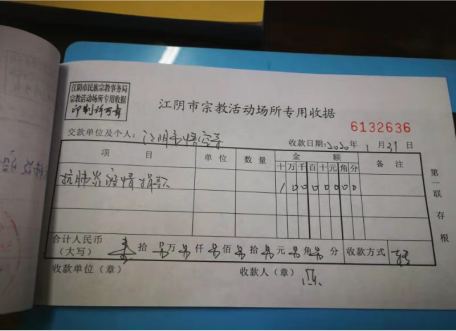 江阴市民族宗教事务局
宗教活动场所专用收据
印制许可章
江阴市宗教活动场所专用收据
6132636
交款单位及个人：江阴市悟空寺
收款日期：2020年1月29日
项 目 单 位 数 量 金 额 备 注
十万千百十元角分
抗肺炎疫情捐款
10000000
第一联 存根
合计人民币（大写） 拾 万 仟 佰 拾 元 角 分 收款方式
收款单位（章） 收款人（章）